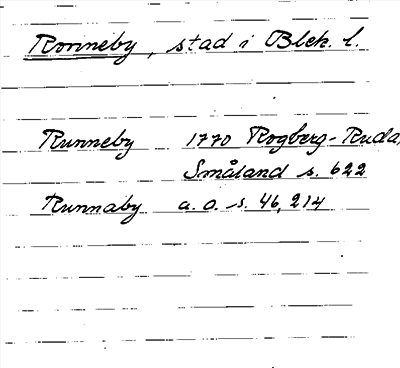 Ronneby, stad i Blek. l.
Runneby 1770 Rogberg-Ruda,
Småland s. 622
Runnaby a. a. s. 46, 214